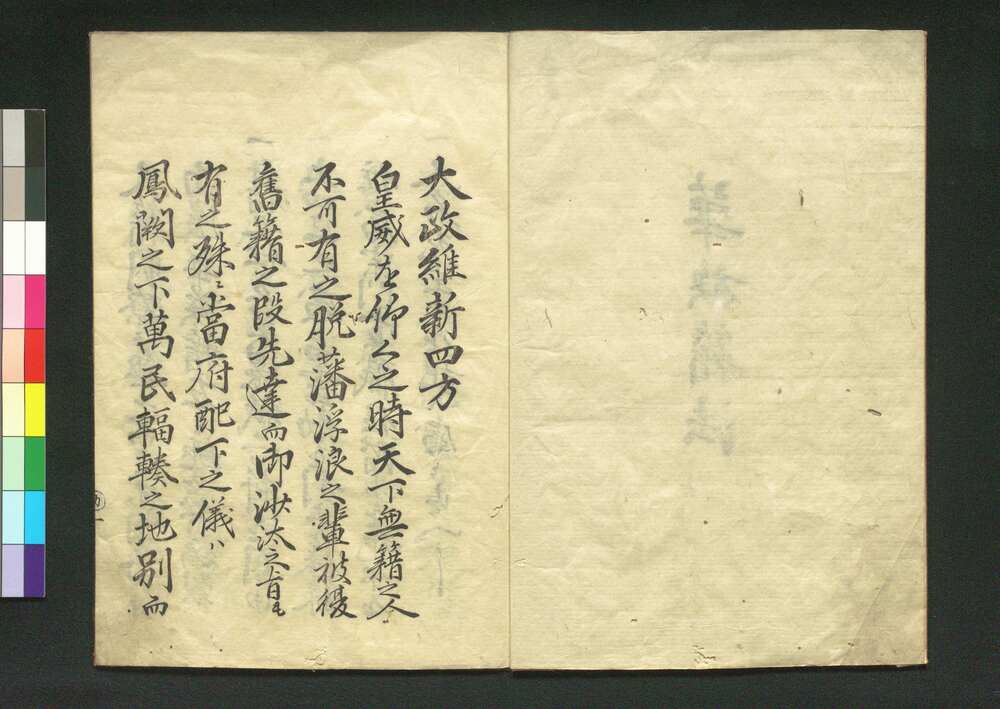 大政維新四方
皇威を仰く之時天下無籍之人
不可有之脱藩浮浪之輩被復
舊籍之段先達而御沙汰之旨も
有之殊ニ當府配下之儀ハ
鳳闕之下萬民輻輳之地別而